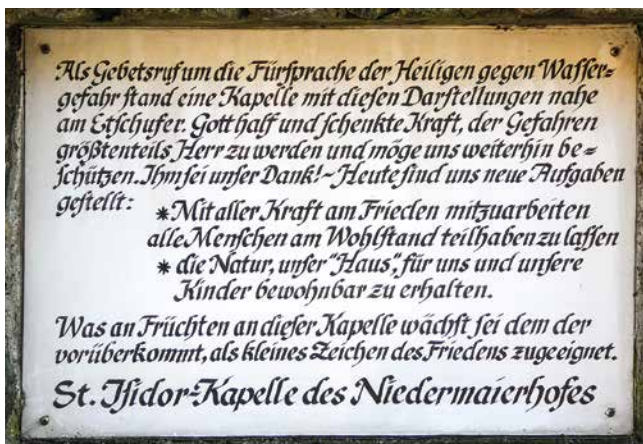 Als Gebetsruf um die Fürsprache der Heiligen gegen Wasser=
gefahr stand eine Kapelle mit diesen Darstellungen nahe
am Etschufer. Gott half und schenkte Kraft, der Gefahren
größtenteils Herr zu werden und möge uns weiterhin be=
schützen. Ihm sei unser Dank! ~ Heute sind uns neue Aufgaben
gestellt:
* Mit aller Kraft am Frieden mitzuarbeiten
alle Menschen am Wohlstand teilhaben zu lassen
* die Natur, unser "Haus", für uns und unsere
Kinder bewohnbar zu erhalten.
Was an Früchten an dieser Kapelle wächst sei dem der
vorüberkommt, als kleines Zeichen des Friedens zugeeignet.
St. Isidor-Kapelle des Niedermaierhofes